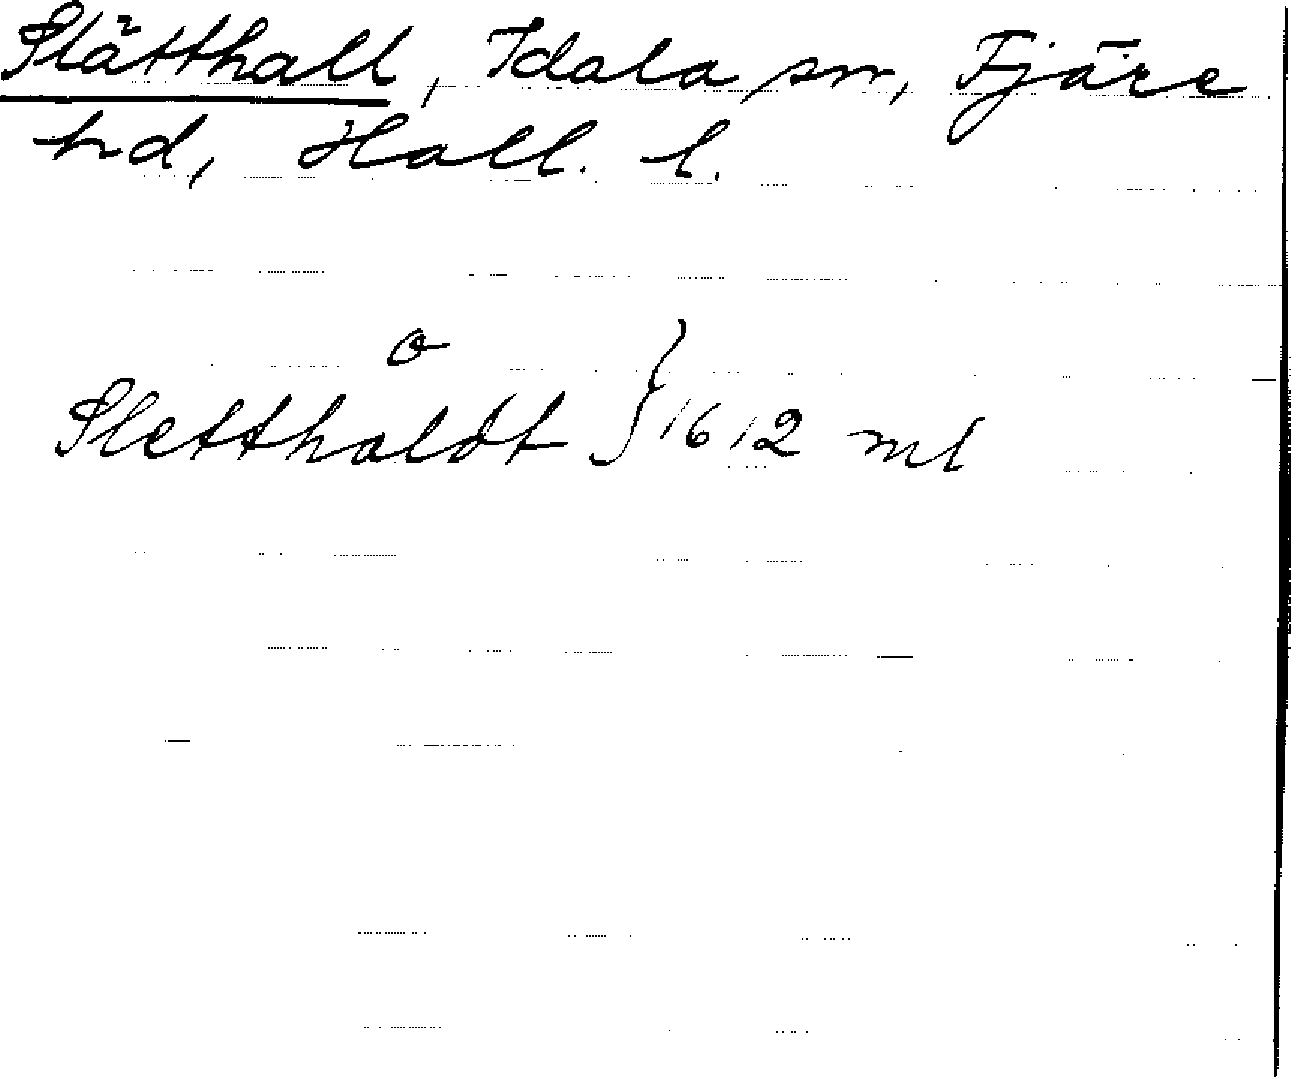 Slätthall, Idala sn, Fjäre
hd, Hall. l.
o
Sletthaldt } 1612 ml